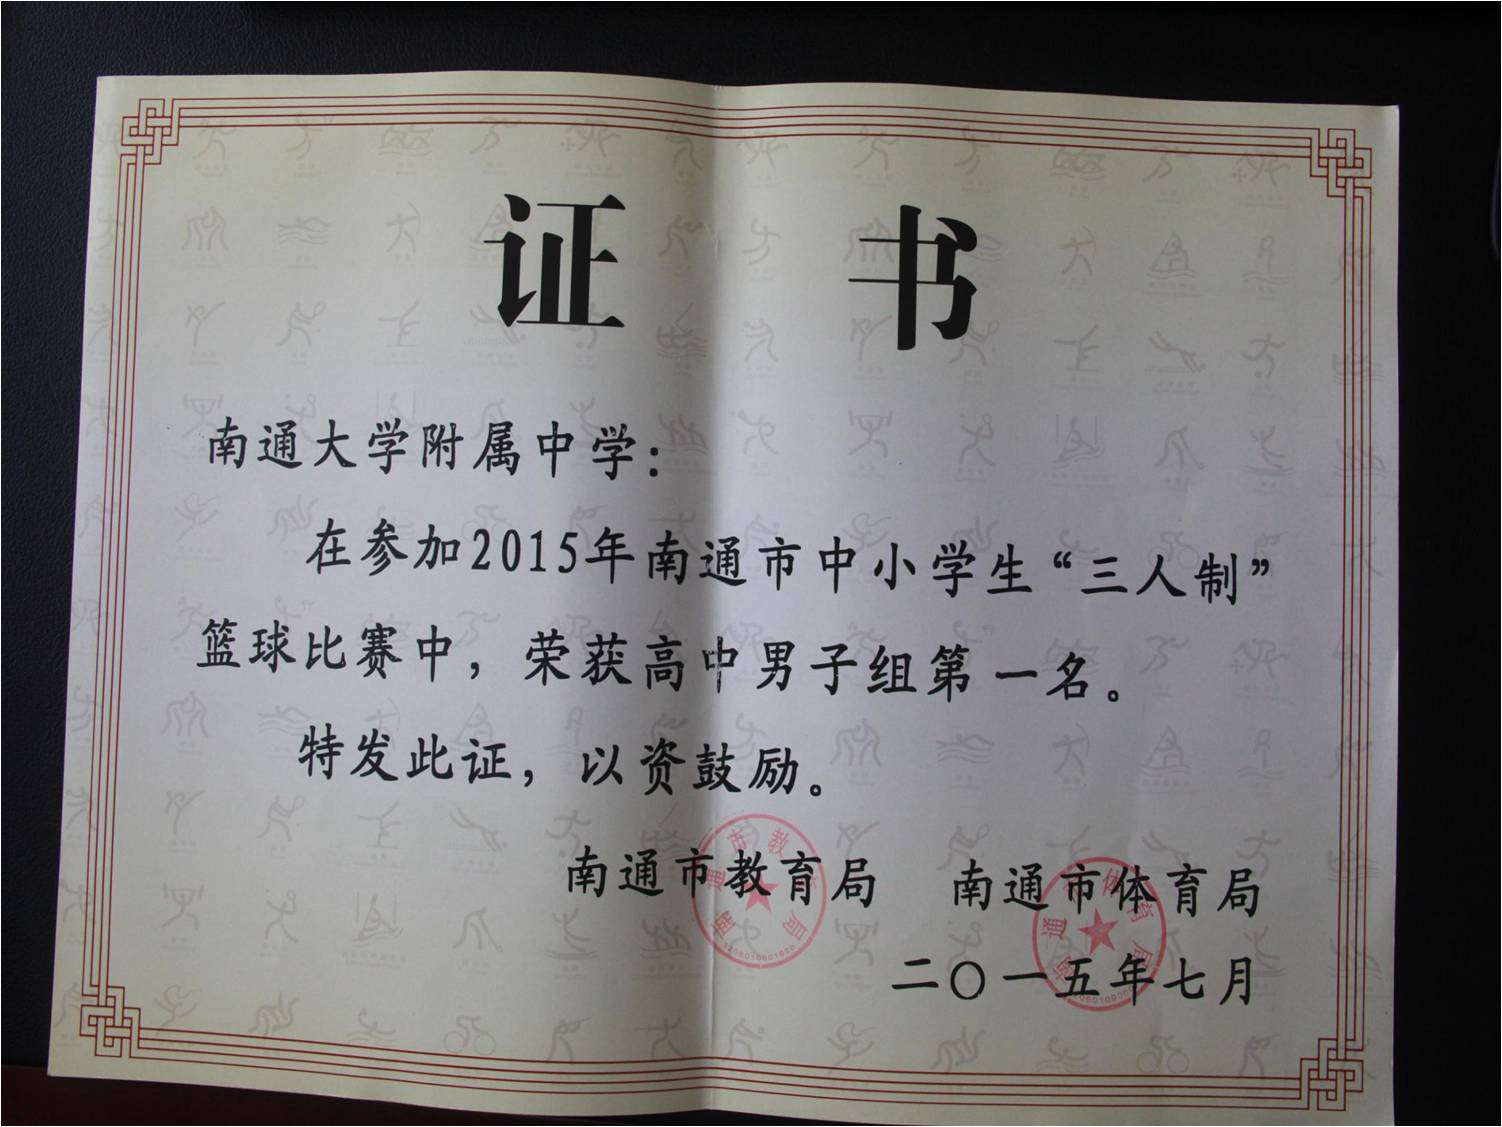 证 书
南通大学附属中学：
在参加2015年南通市中小学生“三人制”
篮球比赛中，荣获高中男子组第一名。
特发此证，以资鼓励。
南通市教育局 南通市体育局
二〇一五年七月